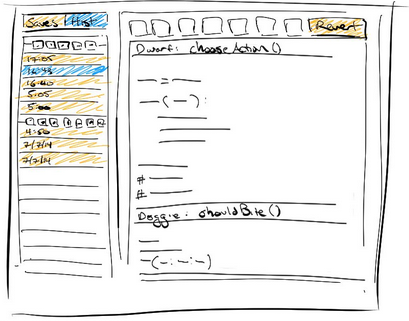 Saves Hist
Revert
17:05
16:45
16:40
5:05
5:00
4:50
7/7/14
7/7/14
Dwarf: chooseAction()
— = —
— ( — ) :
#
#
Doggie: shouldBite()
— ( — : — : — )